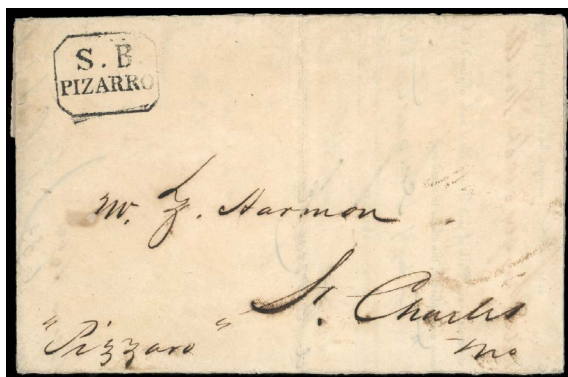 S. B.
PIZARRO
W. Z. Harmon
St. Charles
Mo
"Pizzaro"